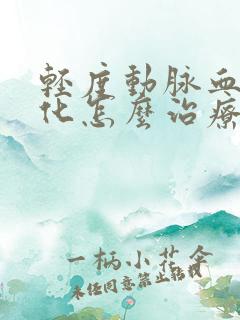 輕度動脈血
化怎麼治療
一柄小花傘
未经同意禁止转载